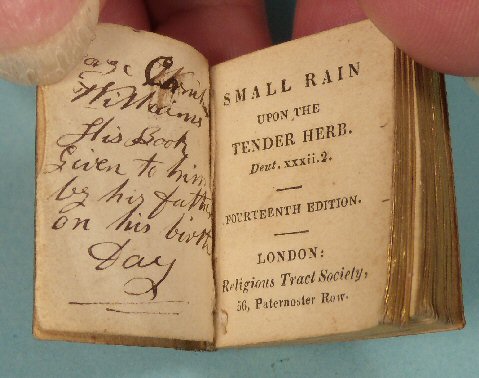 Williams
His Book
Given to him
by his father
on his birth
Day
SMALL RAIN
UPON THE
TENDER HERB.
Deut. xxxii. 2.
FOURTEENTH EDITION.
LONDON:
Religious Tract Society,
56, Paternoster Row.